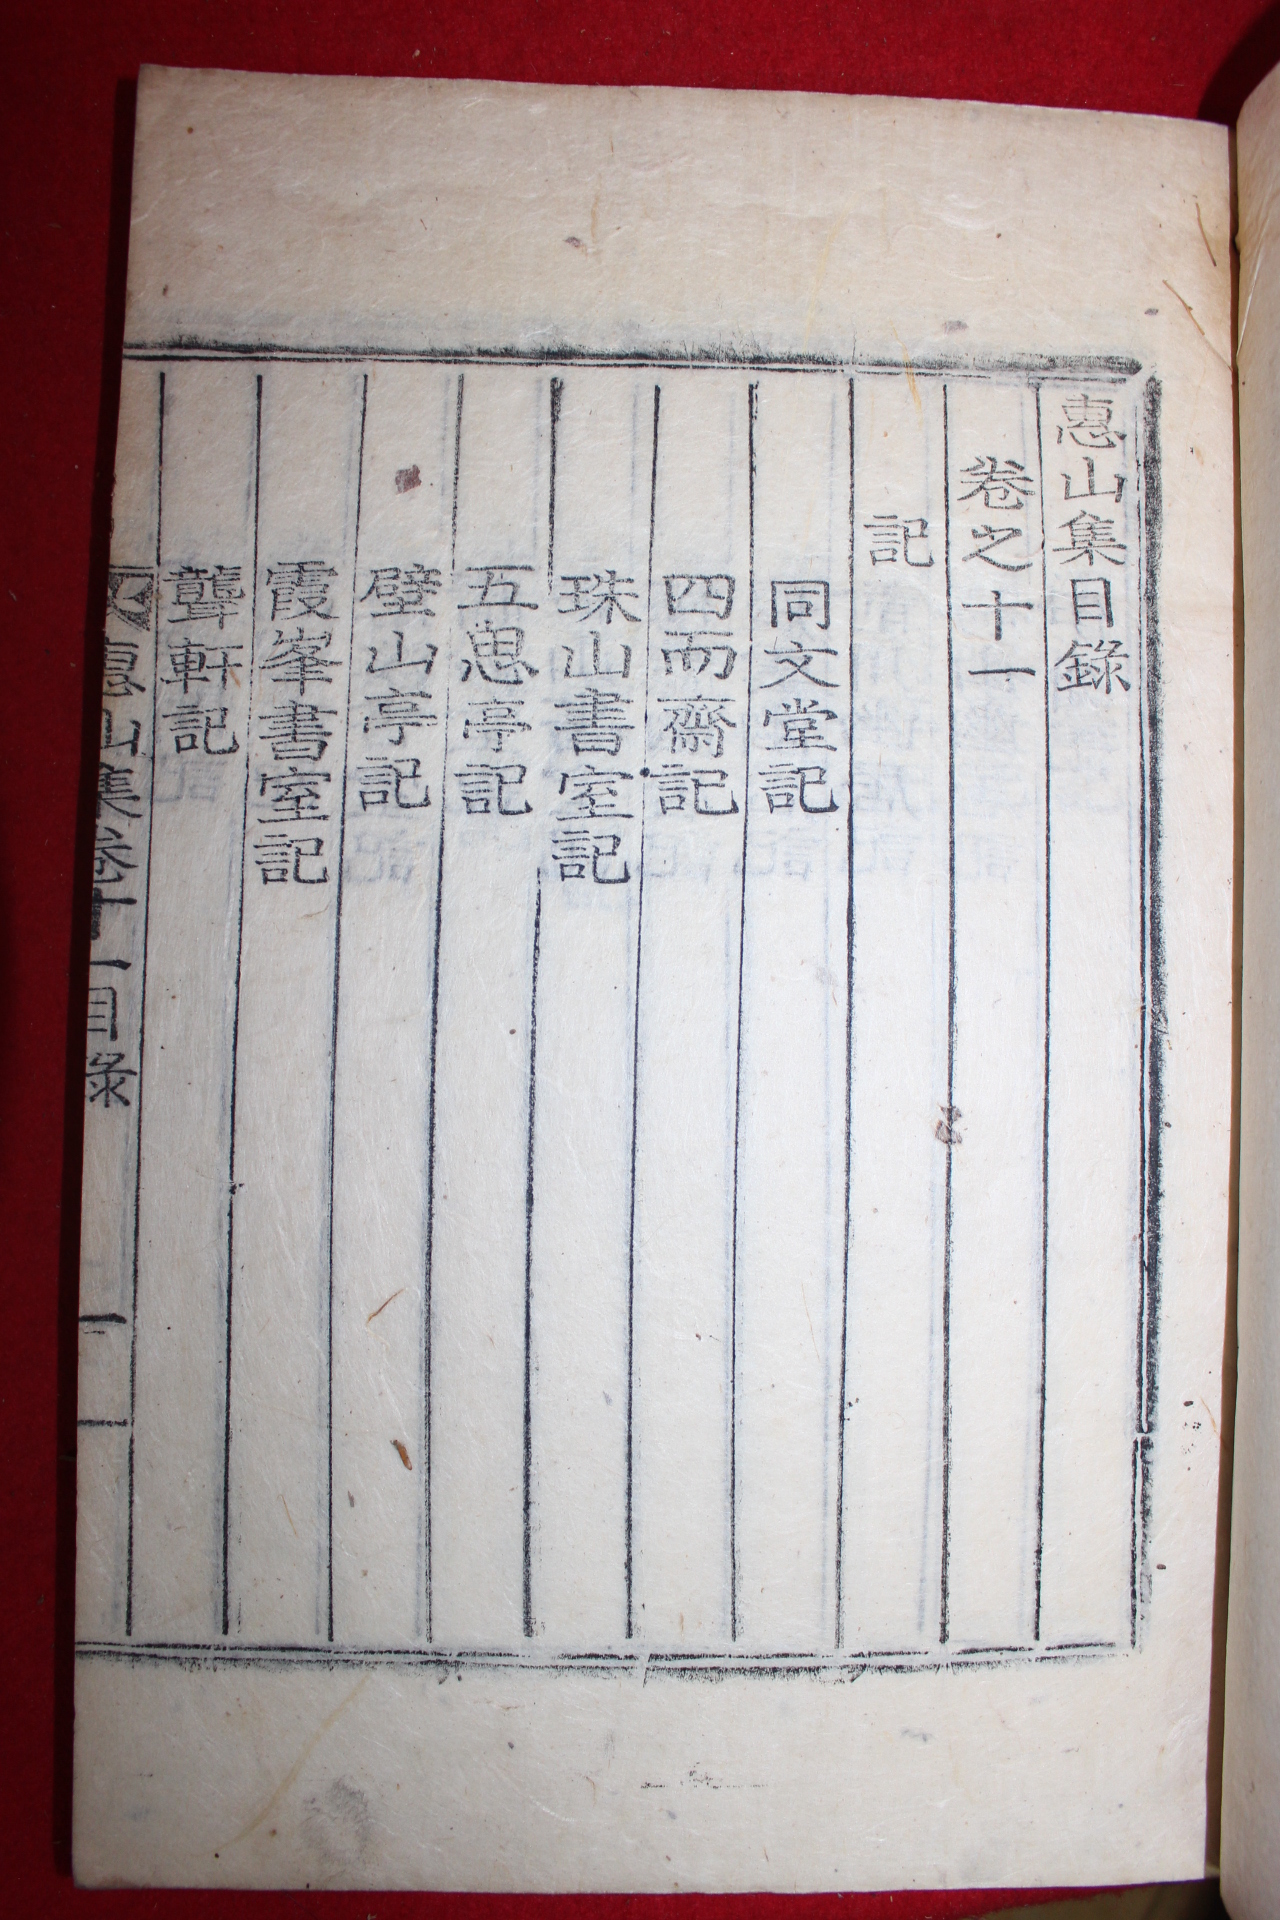 惠山集目錄
卷之十一
記
同文堂記
四而齋記
珠山書室記
五思亭記
壁山亭記
霞峯書室記
聾軒記
惠山集卷十一目錄 一